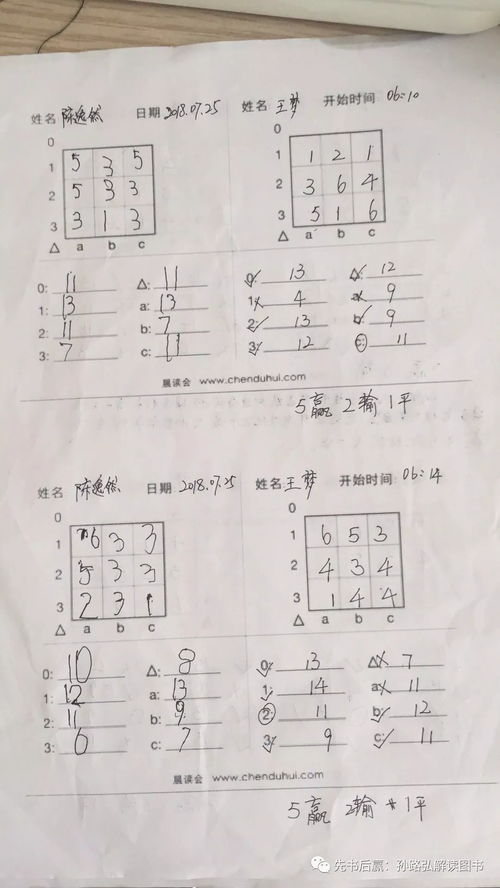 姓名 陈逸然 日期 2018.07.25 姓名 王梦 开始时间: 06:10
0 0
1 5 3 5 1 1 2 1
2 5 3 3 2 3 6 4
3 3 1 3 3 5 1 6
Δ a b c Δ a b c
0: 11 Δ: 11 0: 13 Δ: 12
1: 13 a: 13 1: 4 a: 9
2: 11 b: 7 2: 13 b: 9
3: 7 c: 11 3: 12 c: 11
晨读会 www.chenduhui.com
5赢 2输 1平
姓名 陈逸然 日期 2018.07.25 姓名 王梦 开始时间: 06:14
0 0
1 6 3 3 1 6 5 3
2 5 3 3 2 4 3 4
3 2 3 1 3 1 4 4
Δ a b c Δ a b c
0: 10 Δ: 8 0: 13 Δ: 7
1: 12 a: 13 1: 14 a: 11
2: 11 b: 9 2: 11 b: 12
3: 6 c: 7 3: 9 c: 11
晨读会 www.chenduhui.com
5赢 2输 1平
先书后赢:孙路弘解读图书